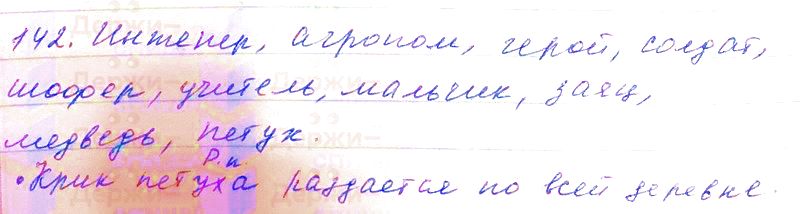 142. Инженер, агроном, герой, солдат,
шофер, учитель, мальчик, заяц,
медведь, петух.
Р.п.
•Крик петуха раздается по всей деревне.